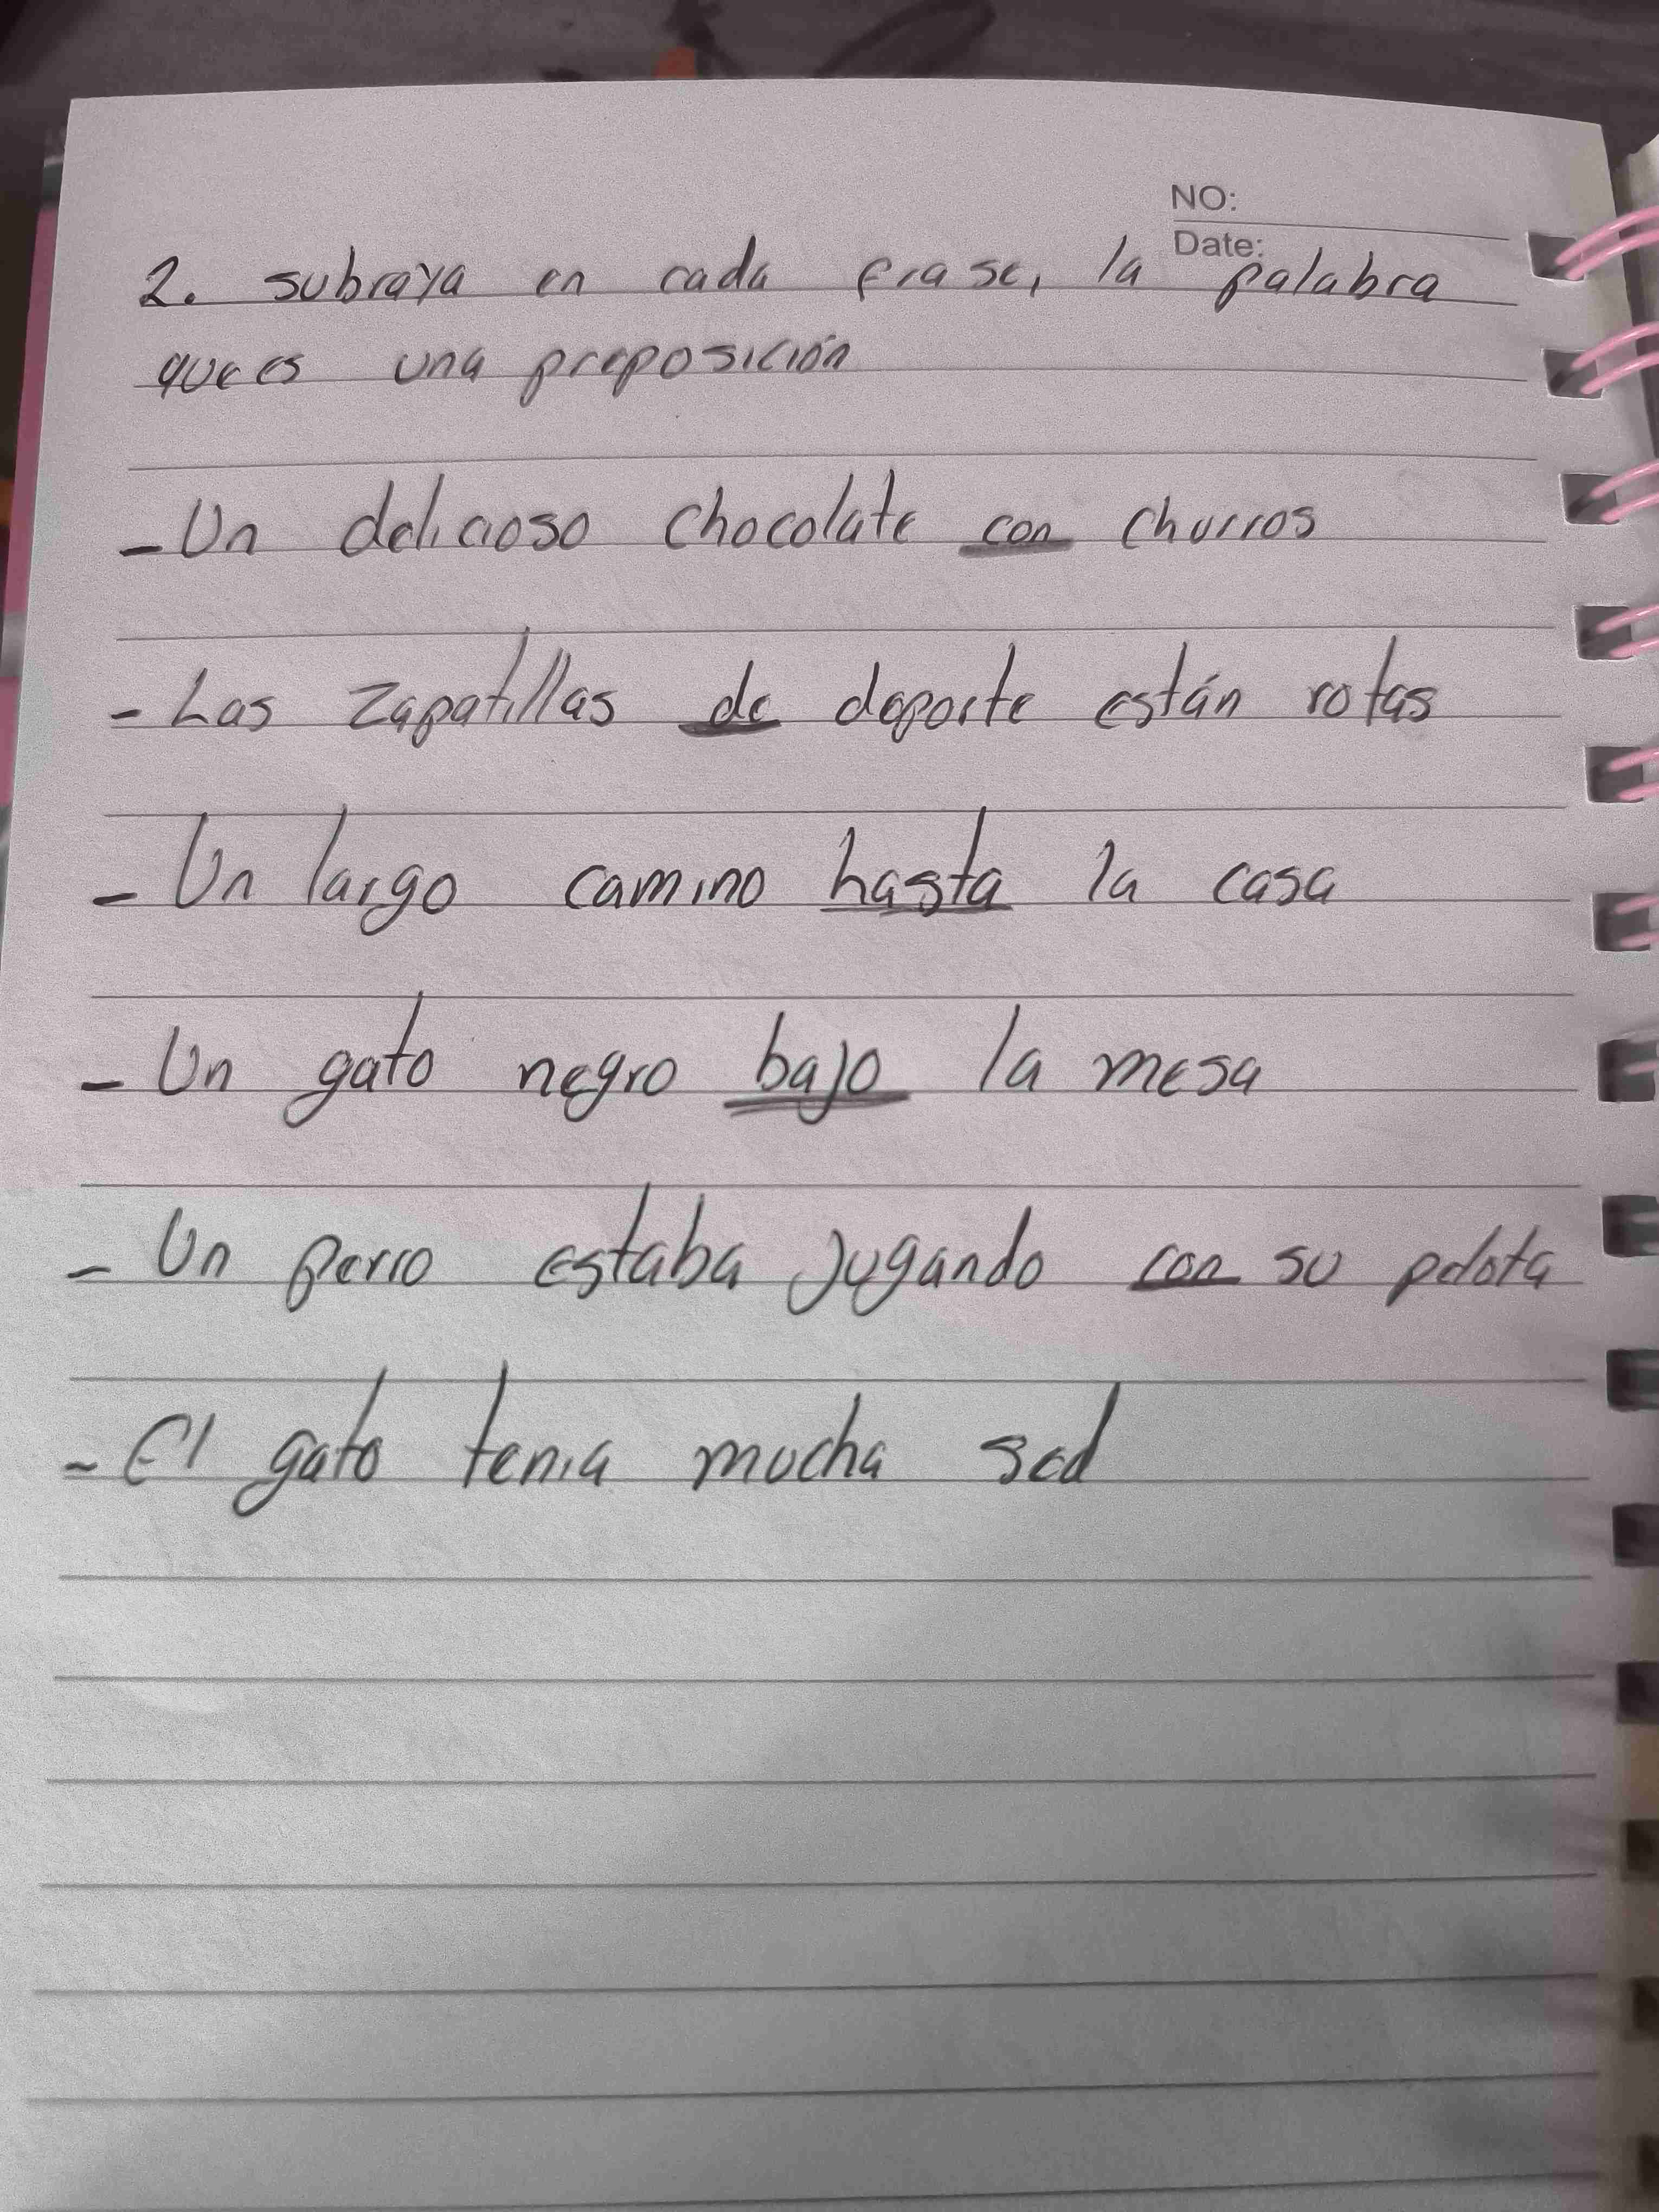 NO:
Date:
2. subraya en cada frase, la palabra
que es una preposición
- Un delicioso chocolate con churros
- Las zapatillas de deporte están rotas
- Un largo camino hasta la casa
- Un gato negro bajo la mesa
- Un perro estaba jugando con su pelota
- El gato tenia mucha sed